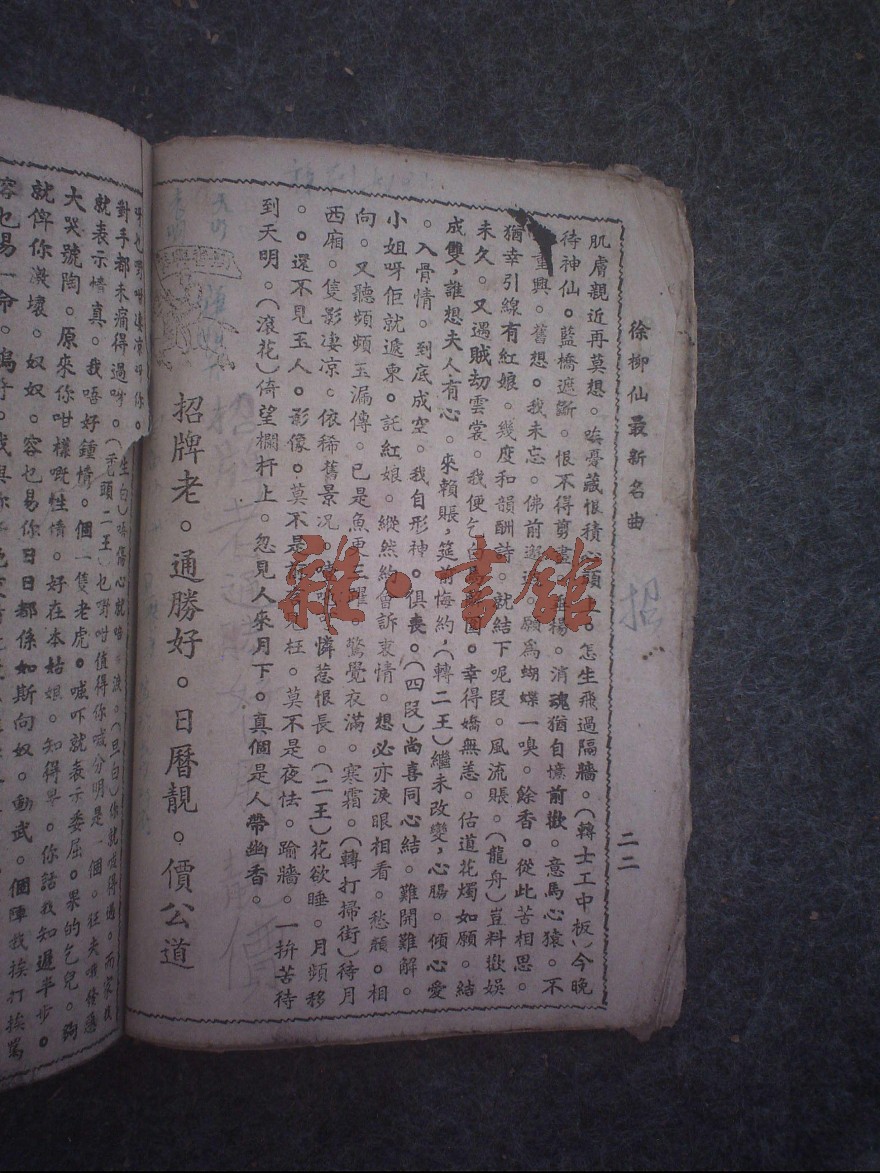 徐柳仙最新名曲
二二
肌膚親近再莫想。藏恨積心頭。怎生飛過隔牆。(轉士工中板)今晚
待神仙。藍橋遮斷。恨不得剪盡垂楊。消魂猶自憶前歡。意馬心猿。不
重興。舊想。我未忘。佛前邂逅。願爲蝴蝶一嗅。餘香。從此苦相思。
猶幸引線有紅娘。幾度和韻酬詩。就結下呢段。風流賬。(龍舟)豈料歡娛
未久。又遇賊刧雲裳。我便乞白馬解圍。幸得嬌無恙。估道花燭如願。結
成雙,誰想夫人有心。來賴賬,筵前悔約,(轉二王)繼未改變,心腸。傾心愛
。入骨情。到底成空。我自形神。俱喪。(四段)尚喜同心結。難開難解。
小姐呀佢就遞柬。託紅娘。縱然約會訴衷情。想必亦淚眼相看。愁顏。相
向。又聽頻頻玉漏傳。已是魚更三躍。驚覺衣滿。寒霜。(轉打掃街)待月
西廂。隻影凄凉。依稀舊景况。憐惹恨長。(二王)花欲睡。月頻移
。。還不見玉人。影像。莫不是枉。莫不是夜怯。踰牆。一拚苦待
到天明。(滾花)倚望欄杆上。忽見人來月下。真個是人帶幽香。
招牌老。通勝好。日曆靚。價公道
招
雜·書館
對手都未痛得過吖。
就表示情真。我唔好鍾情。個一隻老虎。喊吓就表示委屈。
大哭號陶。原來你咁樣嘅性情。好在本姑娘。知得早。你話我知遲半步。
就俾你激壞。奴奴。容乜易你日日都係如斯向奴。動武。個陣我挨打挨罵
容乜易一命。嗚呼。